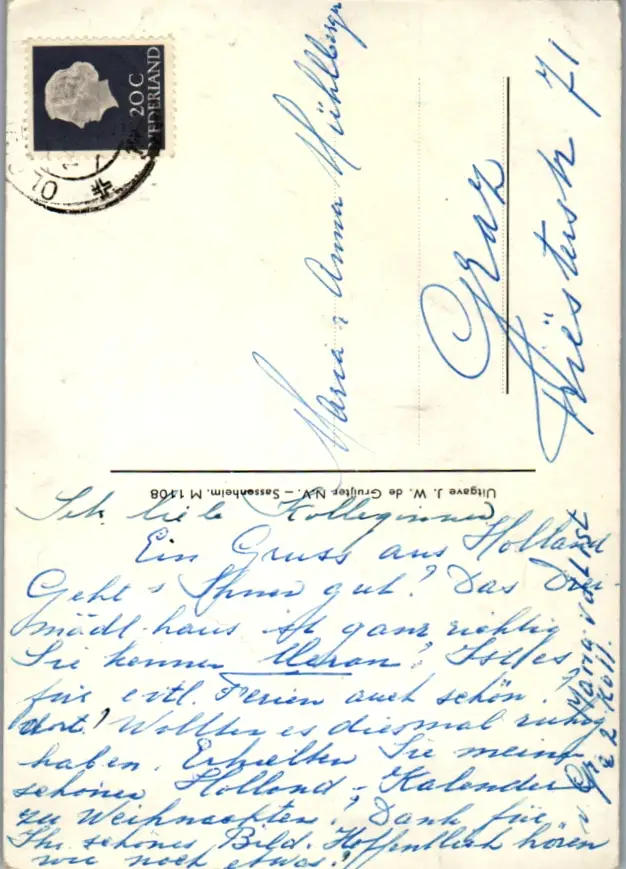 20 C
NEDERLAND
OL
Maria & Anna Mühlberger
Graz
71
Uitgave J. W. de Gruijter N.V. – Sassenheim. M 1108
liebe Kolleginnen
Ein Gruss aus Holland
Geht's Ihnen gut? Das Drei-
mädl-haus ist ganz richtig
Sie kennen Meran? Ist es
für evtl. Ferien auch schön
dort? Wollten es diesmal ruhig
haben. Erhielten Sie meinen
schönen Holland-Kalender
zu Weihnachten? Dank für
Ihr schönes Bild. Hoffentlich hören
wir noch etwas!